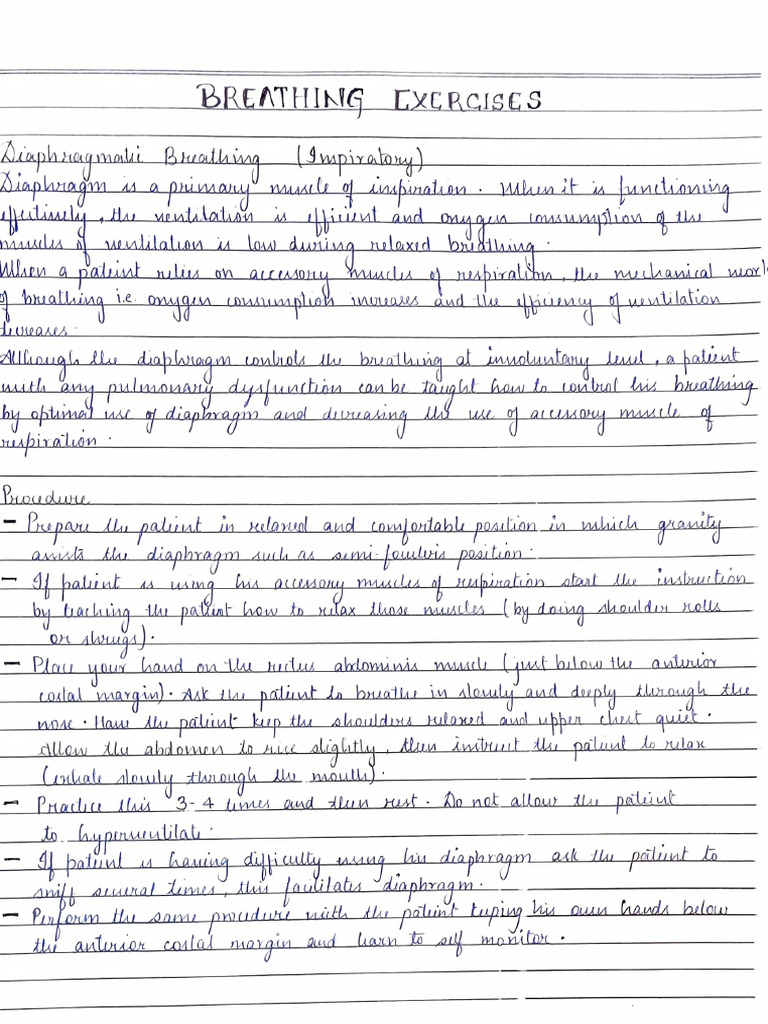 BREATHING EXERCISES
Diaphragmatic Breathing (Inspiratory)
Diaphragm is a primary muscle of inspiration. When it is functioning
effectively, the ventilation is efficient and oxygen consumption of the
muscles of ventilation is low during relaxed breathing.
When a patient relies on accessory muscles of respiration, the mechanical work
of breathing i.e. oxygen consumption increases and the efficiency of ventilation
decreases.
Although the diaphragm controls the breathing at involuntary level, a patient
with any pulmonary dysfunction can be taught how to control his breathing
by optimal use of diaphragm and decreasing the use of accessory muscle of
respiration.
Procedure
- Prepare the patient in relaxed and comfortable position in which gravity
assists the diaphragm such as semi-fowler's position.
- If patient is using his accessory muscles of respiration start the instruction
by teaching the patient how to relax those muscles (by doing shoulder rolls
or shrugs).
- Place your hand on the rectus abdominis muscle (just below the anterior
costal margin). Ask the patient to breathe in slowly and deeply through the
nose. Have the patient keep the shoulders relaxed and upper chest quiet.
Allow the abdomen to rise slightly, then instruct the patient to relax
(exhale slowly through the mouth).
- Practice this 3-4 times and then rest. Do not allow the patient
to hyperventilate.
- If patient is having difficulty using his diaphragm ask the patient to
sniff several times, this facilitates diaphragm.
- Perform the same procedure with the patient keeping his own hands below
the anterior costal margin and learn to self monitor.